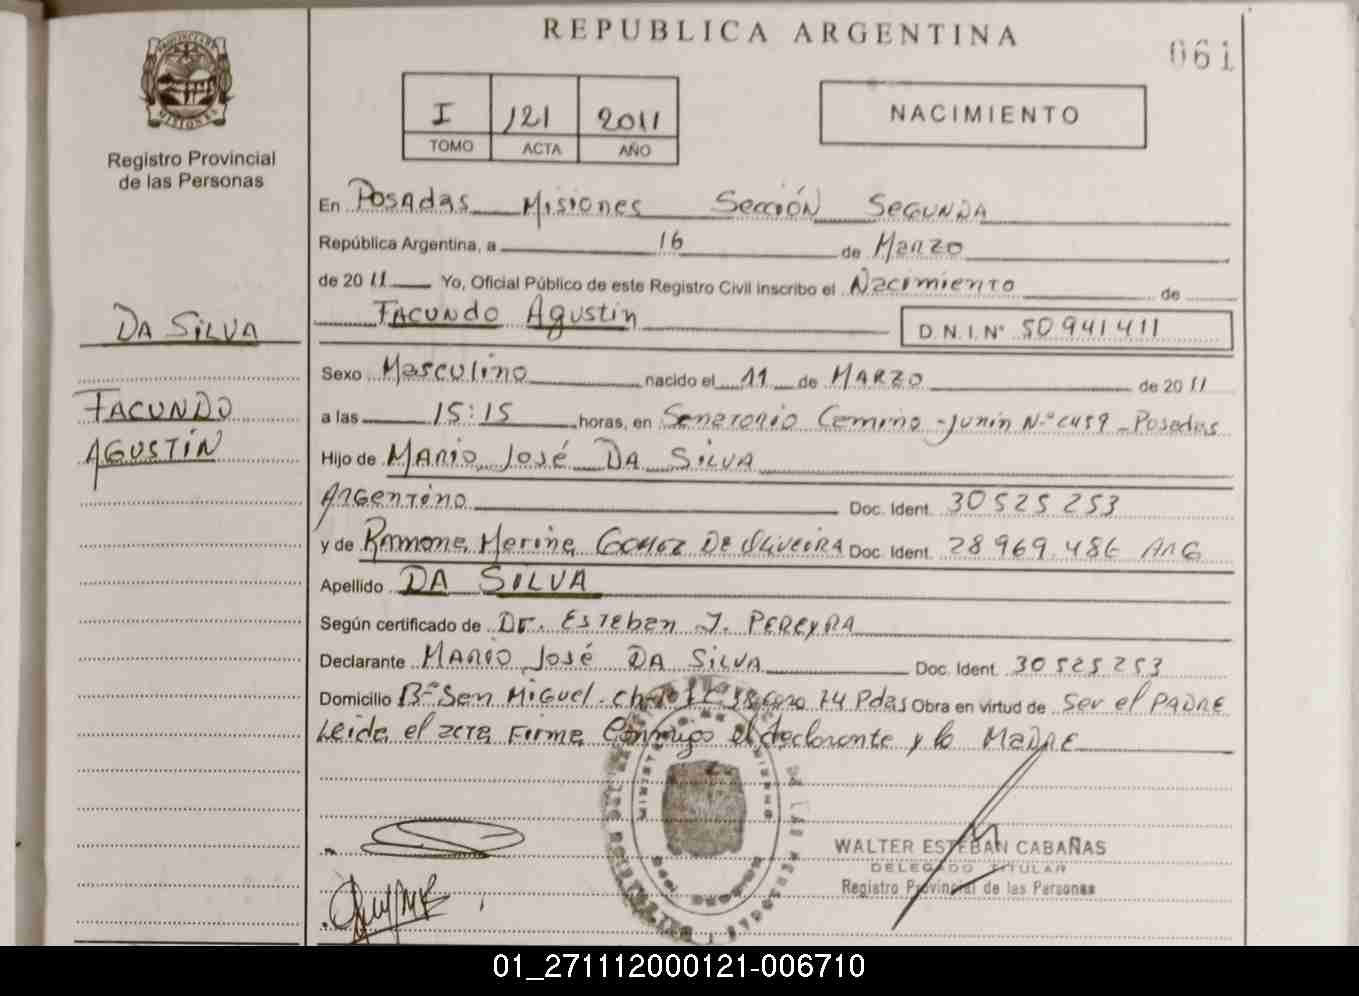 REPUBLICA ARGENTINA
061
I 121 2011
TOMO ACTA AÑO
NACIMIENTO
PROVINCIA DE
MISIONES
Registro Provincial
de las Personas
DA SILVA
FACUNDO
AGUSTÍN
En Posadas Misiones Sección Segunda
República Argentina, a 16 de Marzo
de 2011 Yo, Oficial Público de este Registro Civil inscribo el Nacimiento de
Facundo Agustín D.N.I.Nº 50941411
Sexo Masculino nacido el 11 de MARZO de 2011
a las 15:15 horas, en Sanatorio Camino - Junín N.º - Posadas
Hijo de Mario José DA SILVA
Argentino Doc. Ident. 30 525 253
y de Ramona Marina GOMEZ DE OLIVEIRA Doc. Ident. 28 969.486 ARG
Apellido DA SILVA
Según certificado de Dr. Esteban J. PEREYRA
Declarante MARIO José DA SILVA Doc. Ident. 30525253
Domicilio Bº San Miguel. 74 Pdas Obra en virtud de Ser el PADRE
Leida el acta Firma Conmigo el declarante y la MADRE
WALTER ESTEBAN CABAÑAS
DELEGADO TITULAR
Registro Provincial de las Personas
01_271112000121-006710